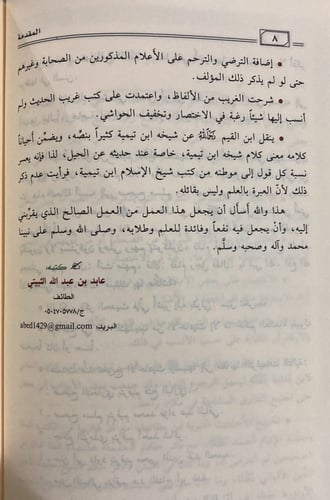 المقدمة
٨
• إضافة الترضي والترحم على الأعلام المذكورين من الصحابة وغيرهم
حتى لو لم يذكر ذلك المؤلف.
• شرحت الغريب من الألفاظ، واعتمدت على كتب غريب الحديث ولم
أنسب إليها شيئاً رغبة في الاختصار وتخفيف الحواشي.
• ينقل ابن القيم رَحِمَهُ اللهُ عن شيخه ابن تيمية كثيراً بنصِّه، ويضمِّن أحياناً
كلامه معنى كلام شيخه ابن تيمية، خاصة عند حديثه عن الحيل، لذا فإنه يعسر
نسبة كل قول إلى موطنه من كتب شيخ الإسلام ابن تيمية، فرأيت عدم ذكر
ذلك لأنَّ العبرة بالعلم وليس بقائله.
هذا والله أسأل أن يجعل هذا العمل من العمل الصالح الذي يقرِّبني
إليه، وأنْ يجعل فيه نفعاً وفائدة للعلم وطلابه، وصلى الله وسلم على نبينا
محمد وآله وصحبه وسلَّم.
كتبه:
عابد بن عبد الله الثبيتي
الطائف
البريد: abed1429@gmail.com